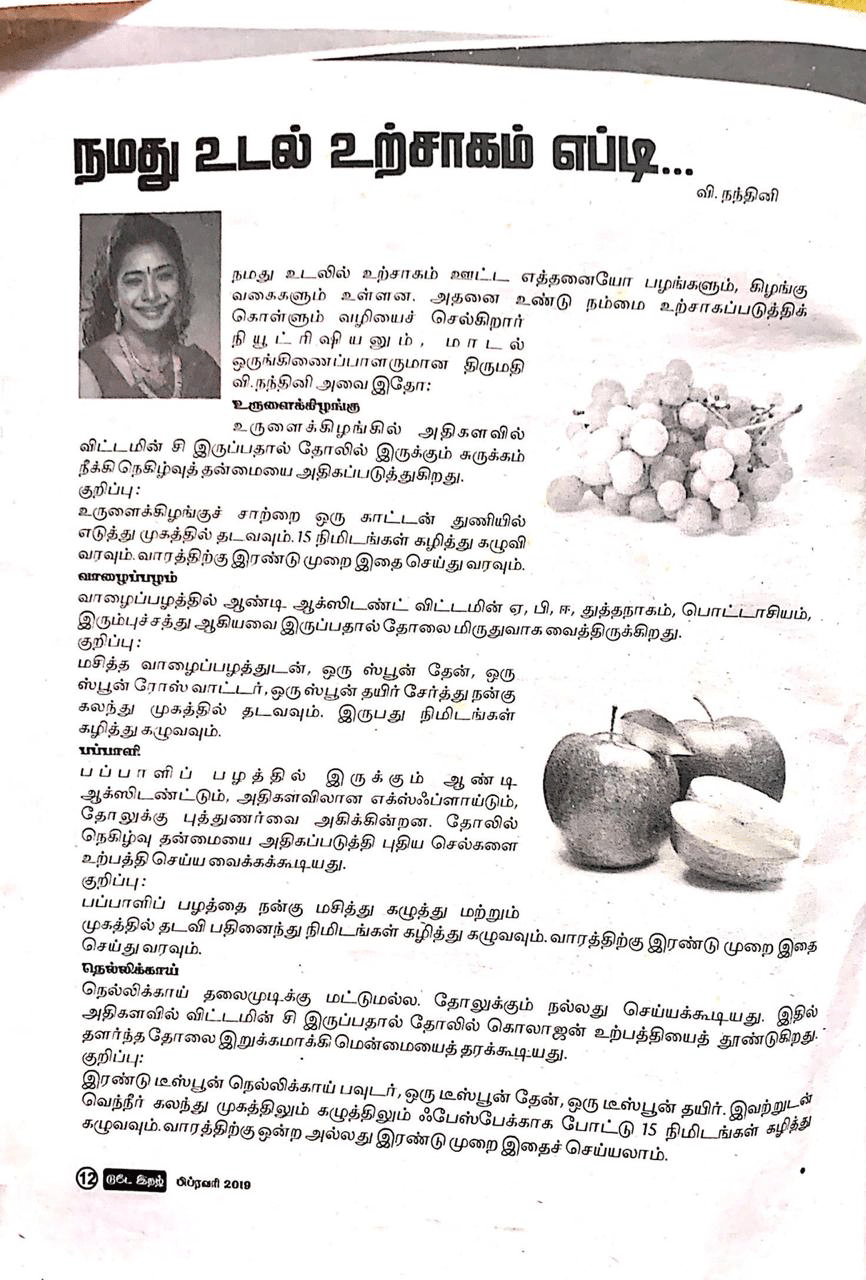 நமது உடல் உற்சாகம் எப்டி...
வி. நந்தினி
நமது உடலில் உற்சாகம் ஊட்ட எத்தனையோ பழங்களும், கிழங்கு
வகைகளும் உள்ளன. அதனை உண்டு நம்மை உற்சாகப்படுத்திக்
கொள்ளும் வழியைச் செல்கிறார்
நியூட்ரிஷியனும், மாடல்
ஒருங்கிணைப்பாளருமான திருமதி
வி.நந்தினி அவை இதோ:
உருளைக்கிழங்கு
உருளைக்கிழங்கில் அதிகளவில்
விட்டமின் சி இருப்பதால் தோலில் இருக்கும் சுருக்கம்
நீக்கி நெகிழ்வுத் தன்மையை அதிகப்படுத்துகிறது.
குறிப்பு:
உருளைக்கிழங்குச் சாற்றை ஒரு காட்டன் துணியில்
எடுத்து முகத்தில் தடவவும். 15 நிமிடங்கள் கழித்து கழுவி
வரவும். வாரத்திற்கு இரண்டு முறை இதை செய்து வரவும்.
வாழைப்பழம்
வாழைப்பழத்தில் ஆண்டி ஆக்ஸிடண்ட் விட்டமின் ஏ, பி, ஈ, துத்தநாகம், பொட்டாசியம்,
இரும்புச்சத்து ஆகியவை இருப்பதால் தோலை மிருதுவாக வைத்திருக்கிறது.
குறிப்பு:
மசித்த வாழைப்பழத்துடன், ஒரு ஸ்பூன் தேன், ஒரு
ஸ்பூன் ரோஸ் வாட்டர், ஒரு ஸ்பூன் தயிர் சேர்த்து நன்கு
கலந்து முகத்தில் தடவவும். இருபது நிமிடங்கள்
கழித்து கழுவவும்.
பப்பாளி
பப்பாளிப் பழத்தில் இருக்கும் ஆண்டி
ஆக்ஸிடண்ட்டும், அதிகள்விலான எக்ஸ்ஃப்ளாய்டும்,
தோலுக்கு புத்துணர்வை அகிக்கின்றன. தோலில்
நெகிழ்வு தன்மையை அதிகப்படுத்தி புதிய செல்களை
உற்பத்தி செய்ய வைக்கக்கூடியது.
குறிப்பு:
பப்பாளிப் பழத்தை நன்கு மசித்து கழுத்து மற்றும்
முகத்தில் தடவி பதினைந்து நிமிடங்கள் கழித்து கழுவவும். வாரத்திற்கு இரண்டு முறை இதை
செய்து வரவும்.
நெல்லிக்காய்
நெல்லிக்காய் தலைமுடிக்கு மட்டுமல்ல. தோலுக்கும் நல்லது செய்யக்கூடியது. இதில்
அதிகளவில் விட்டமின் சி இருப்பதால் தோலில் கொலாஜன் உற்பத்தியைத் தூண்டுகிறது.
தளர்ந்த தோலை இறுக்கமாக்கி மென்மையைத் தரக்கூடியது.
குறிப்பு:
இரண்டு டீஸ்பூன் நெல்லிக்காய் பவுடர், ஒரு டீஸ்பூன் தேன், ஒரு டீஸ்பூன் தயிர். இவற்றுடன்
வெந்நீர் கலந்து முகத்திலும் கழுத்திலும் ஃபேஸ்பேக்காக போட்டு 15 நிமிடங்கள் கழித்து
கழுவவும். வாரத்திற்கு ஒன்ற அல்லது இரண்டு முறை இதைச் செய்யலாம்.
12 டுடே இறஜ் பிப்ரவரி 2019